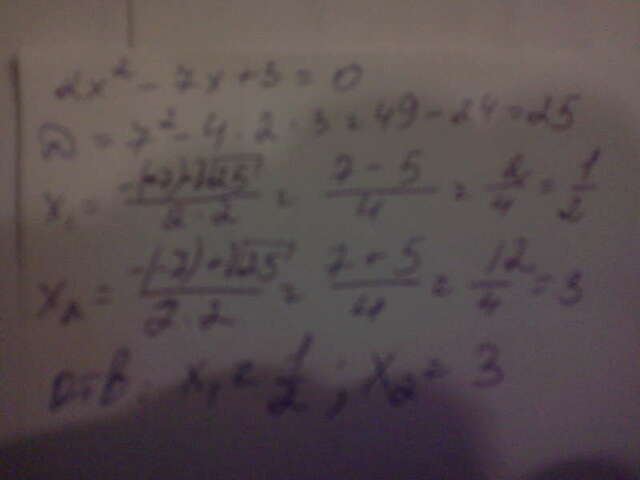 2x² - 7x + 3 = 0
D = 7² - 4 · 2 · 3 = 49 - 24 = 25
x₁ = (-(-7) - √25) / (2 · 2) = (7 - 5) / 4 = 2/4 = 1/2
x₂ = (-(-7) + √25) / (2 · 2) = (7 + 5) / 4 = 12/4 = 3
Отв. x₁ = 1/2 ; x₂ = 3